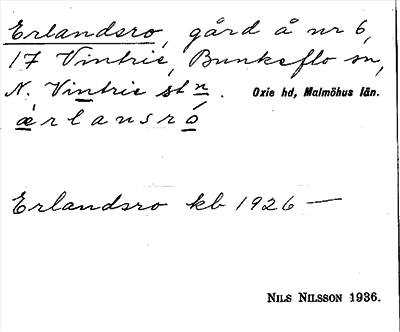 Erlandsro, gård å nr 6,
17 Vintrie, Bunkeflo sn,
N. Vintrie stn. Oxie hd, Malmöhus län.
ærlansró
Erlandsro kb 1926 —
NILS NILSSON 1936.